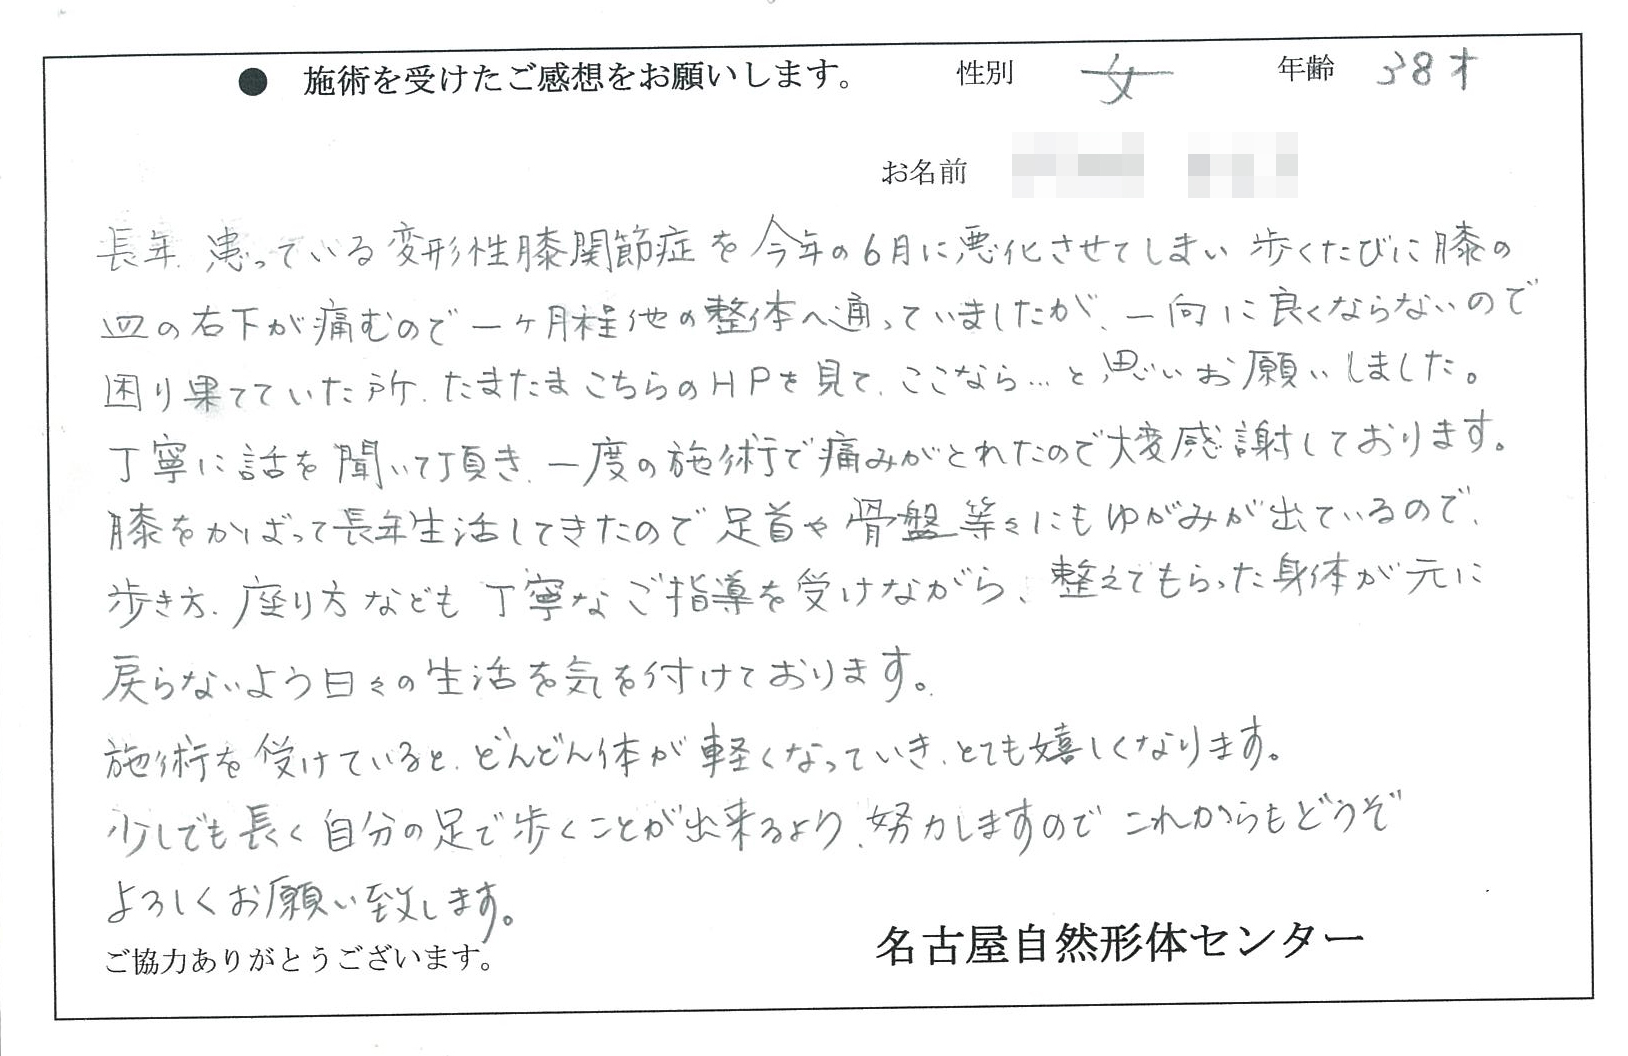 ● 施術を受けたご感想をお願いします。 性別 女 年齢 38才
お名前
長年、患っている変形性膝関節症を今年の6月に悪化させてしまい 歩くたびに膝の
皿の右下が痛むので一ヶ月程他の整体へ通っていましたが、一向に良くならないので
困り果てていた所、たまたまこちらのHPを見て、ここなら…と思いお願いしました。
丁寧に話を聞いて頂き、一度の施術で痛みがとれたので大変感謝しております。
膝をかばって長年生活してきたので足首や骨盤等々にもゆがみが出ているので、
歩き方、座り方なども丁寧なご指導を受けながら、整えてもらった身体が元に
戻らないよう日々の生活を気を付けております。
施術を受けていると、どんどん体が軽くなっていき、とても嬉しくなります。
少しでも長く自分の足で歩くことが出来るよう、努力しますのでこれからもどうぞ
よろしくお願い致します。
ご協力ありがとうございます。 名古屋自然形体センター